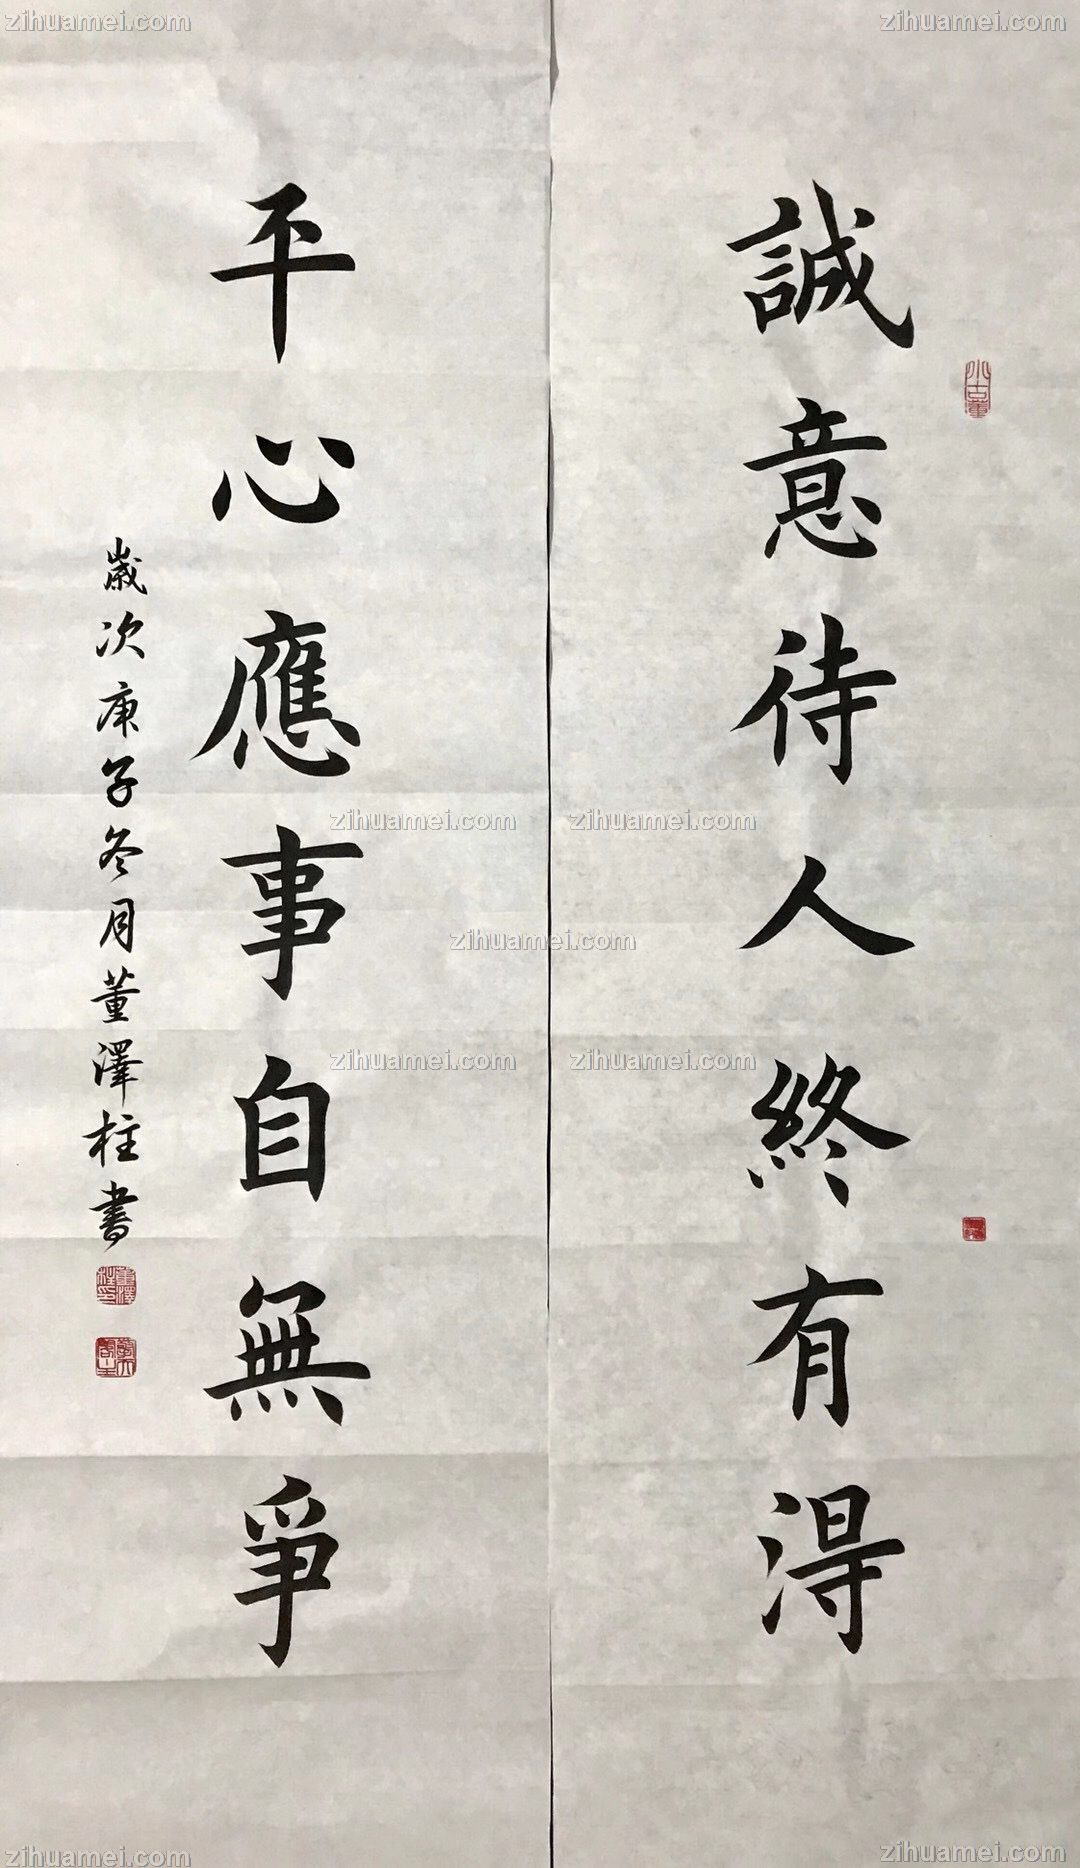 誠意待人終有得
平心應事自無爭
歲次庚子冬月董澤柱書
zihuamei.com
zihuamei.com
zihuamei.com
zihuamei.com
zihuamei.com
zihuamei.com
zihuamei.com
zihuamei.com
zihuamei.com